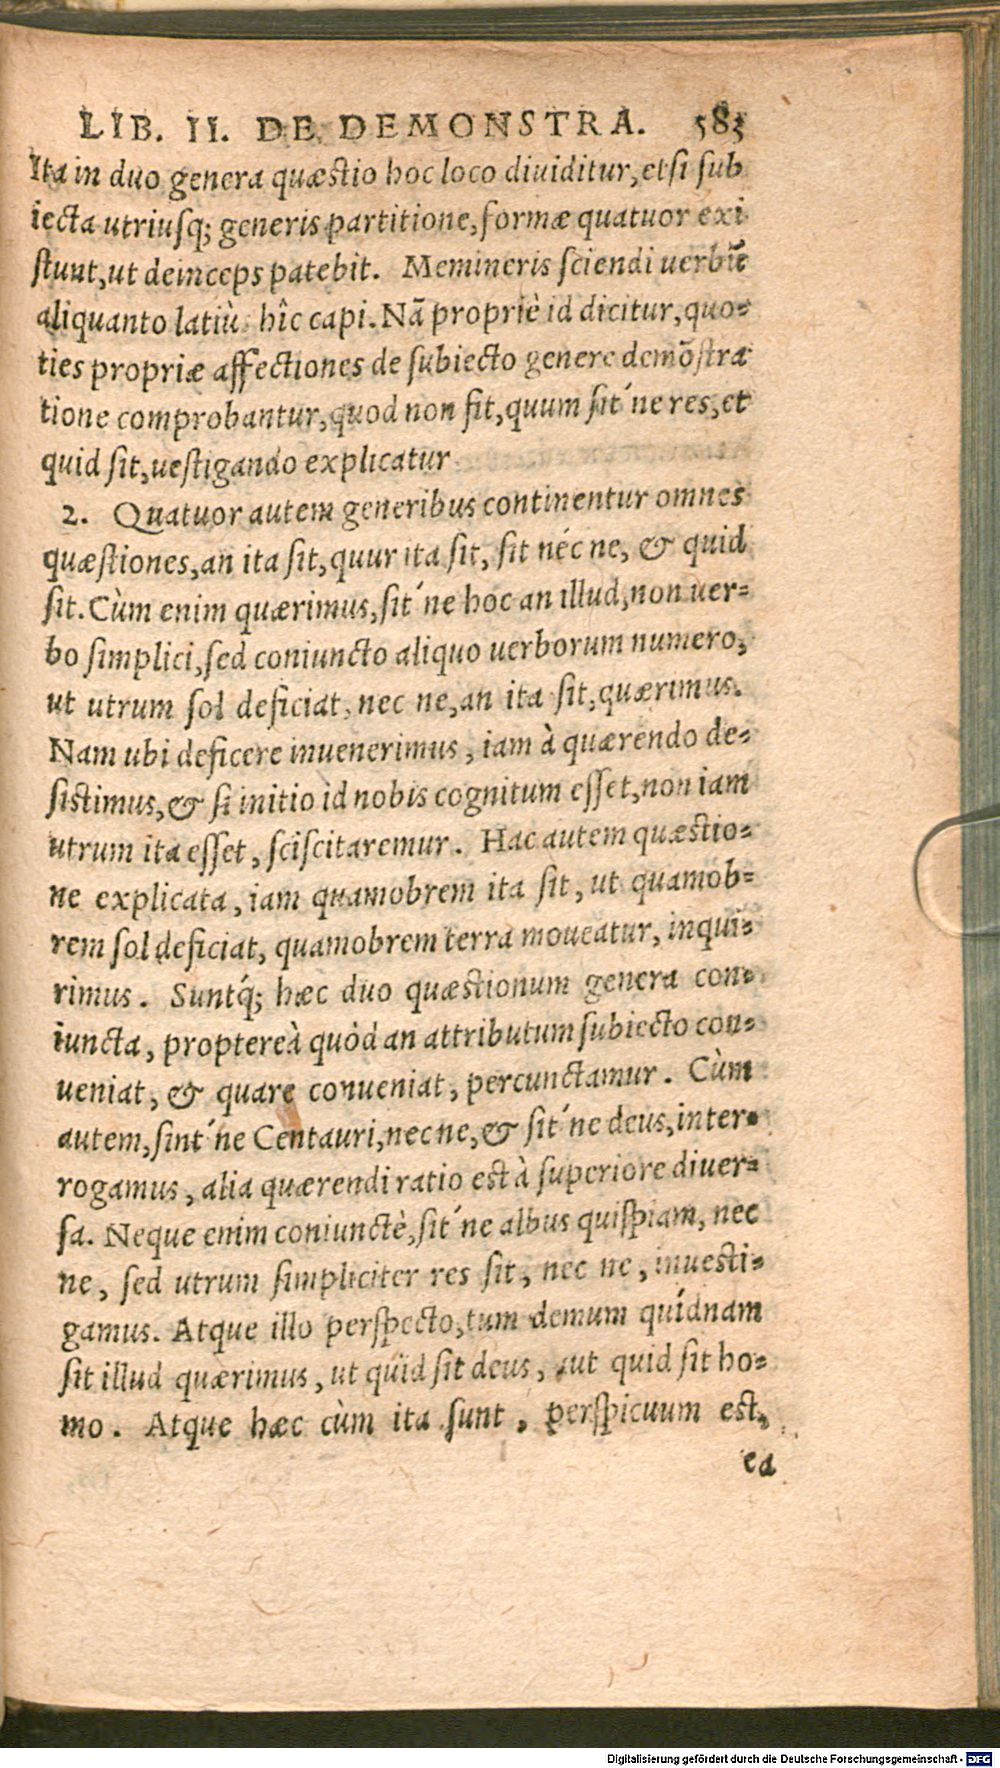 LIB. II. DE DEMONSTRA. 583
Ita in duo genera quæstio hoc loco diuiditur, etsi sub
iecta utriusq; generis partitione, formæ quatuor exi
stunt, ut deinceps patebit. Memineris sciendi uerbũ
aliquanto latiùs hîc capi. Nã propriè id dicitur, quo-
ties propriæ affectiones de subiecto genere demõstra
tione comprobantur, quod non fit, quum sit´ne res, et
quid sit, uestigando explicatur.
2. Quatuor autem generibus continentur omnes
quæstiones, an ita sit, quur ita sit, sit néc ne, & quid
sit. Cùm enim quærimus, sit´ne hoc an illud, non uer-
bo simplici, sed coniuncto aliquo uerborum numero,
ut utrum sol deficiat, nec ne, an ita sit, quærimus.
Nam ubi deficere inuenerimus, iam à quærendo de-
sistimus, & si initio id nobis cognitum esset, non iam
utrum ita esset, sciscitaremur. Hac autem quæstio-
ne explicata, iam quamobrem ita sit, ut quamob-
rem sol deficiat, quamobrem terra moueatur, inqui-
rimus. Suntq́; hæc duo quæstionum genera con-
iuncta, proptereà quòd an attributum subiecto con-
ueniat, & quare conueniat, percunctamur. Cùm
autem, sint´ne Centauri, nec ne, & sit´ne deus, inter-
rogamus, alia quærendi ratio est à superiore diuer-
sa. Neque enim coniunctè, sit´ne albus quispiam, nec
ne, sed utrum simpliciter res sit, nec ne, inuesti-
gamus. Atque illo perspecto, tum demum quídnam
sit illud quærimus, ut quid sit deus, aut quid sit ho-
mo. Atque hæc cùm ita sunt, perspicuum est,
ea
Digitalisierung gefördert durch die Deutsche Forschungsgemeinschaft - DFG